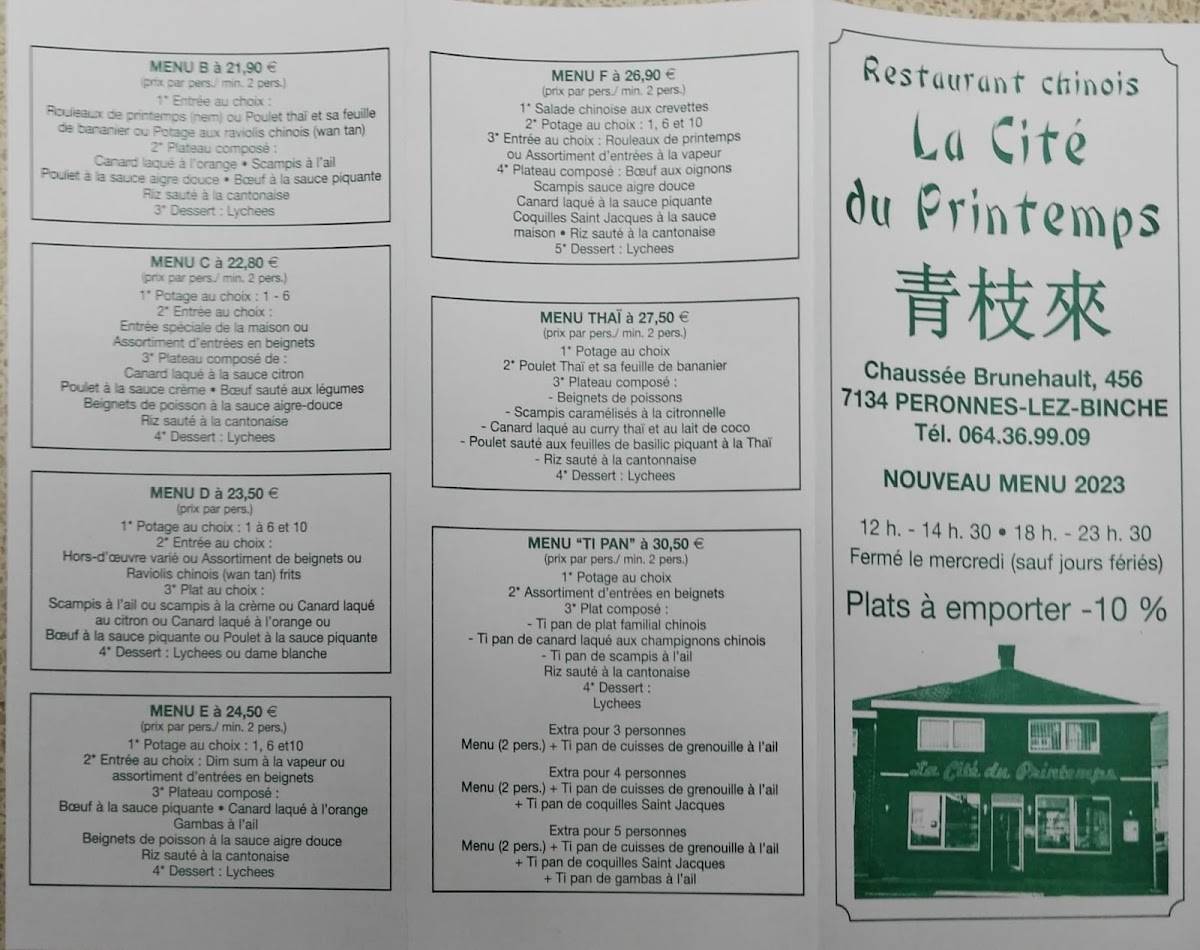 MENU B à 21,90 €
(prix par pers./ min. 2 pers.)
1° Entrée au choix :
Rouleaux de printemps (nem) ou Poulet thaï et sa feuille
de bananier ou Potage aux raviolis chinois (wan tan)
2° Plateau composé :
Canard laqué à l'orange • Scampis à l'ail
Poulet à la sauce aigre douce • Bœuf à la sauce piquante
Riz sauté à la cantonaise
3° Dessert : Lychees
MENU C à 22,80 €
(prix par pers./ min. 2 pers.)
1° Potage au choix : 1 - 6
2° Entrée au choix :
Entrée spéciale de la maison ou
Assortiment d'entrées en beignets
3° Plateau composé de :
Canard laqué à la sauce citron
Poulet à la sauce crème • Bœuf sauté aux légumes
Beignets de poisson à la sauce aigre-douce
Riz sauté à la cantonaise
4° Dessert : Lychees
MENU D à 23,50 €
(prix par pers.)
1° Potage au choix : 1 à 6 et 10
2° Entrée au choix :
Hors-d'œuvre varié ou Assortiment de beignets ou
Raviolis chinois (wan tan) frits
3° Plat au choix :
Scampis à l'ail ou scampis à la crème ou Canard laqué
au citron ou Canard laqué à l'orange ou
Bœuf à la sauce piquante ou Poulet à la sauce piquante
4° Dessert : Lychees ou dame blanche
MENU E à 24,50 €
(prix par pers./ min. 2 pers.)
1° Potage au choix : 1, 6 et10
2° Entrée au choix : Dim sum à la vapeur ou
assortiment d'entrées en beignets
3° Plateau composé :
Bœuf à la sauce piquante • Canard laqué à l'orange
Gambas à l'ail
Beignets de poisson à la sauce aigre douce
Riz sauté à la cantonaise
4° Dessert : Lychees
MENU F à 26,90 €
(prix par pers./ min. 2 pers.)
1° Salade chinoise aux crevettes
2° Potage au choix : 1, 6 et 10
3° Entrée au choix : Rouleaux de printemps
ou Assortiment d'entrées à la vapeur
4° Plateau composé : Bœuf aux oignons
Scampis sauce aigre douce
Canard laqué à la sauce piquante
Coquilles Saint Jacques à la sauce
maison • Riz sauté à la cantonaise
5° Dessert : Lychees
MENU THAÏ à 27,50 €
(prix par pers./ min. 2 pers.)
1° Potage au choix
2° Poulet Thaï et sa feuille de bananier
3° Plateau composé :
- Beignets de poissons
- Scampis caramélisés à la citronnelle
- Canard laqué au curry thaï et au lait de coco
- Poulet sauté au feuilles de basilic piquant à la Thaï
- Riz sauté à la cantonnaise
4° Dessert : Lychees
MENU "TI PAN" à 30,50 €
(prix par pers./ min. 2 pers.)
1° Potage au choix
2° Assortiment d'entrées en beignets
3° Plat composé :
- Ti pan de plat familial chinois
- Ti pan de canard laqué aux champignons chinois
- Ti pan de scampis à l'ail
Riz sauté à la cantonaise
4° Dessert :
Lychees
Extra pour 3 personnes
Menu (2 pers.) + Ti pan de cuisses de grenouille à l'ail
Extra pour 4 personnes
Menu (2 pers.) + Ti pan de cuisses de grenouille à l'ail
+ Ti pan de coquilles Saint Jacques
Extra pour 5 personnes
Menu (2 pers.) + Ti pan de cuisses de grenouille à l'ail
+ Ti pan de coquilles Saint Jacques
+ Ti pan de gambas à l'ail
Restaurant chinois
La Cité
du Printemps
青枝來
Chaussée Brunehault, 456
7134 PERONNES-LEZ-BINCHE
Tél. 064.36.99.09
NOUVEAU MENU 2023
12 h. - 14 h. 30 • 18 h. - 23 h. 30
Fermé le mercredi (sauf jours fériés)
Plats à emporter -10 %
La Cité du Printemps